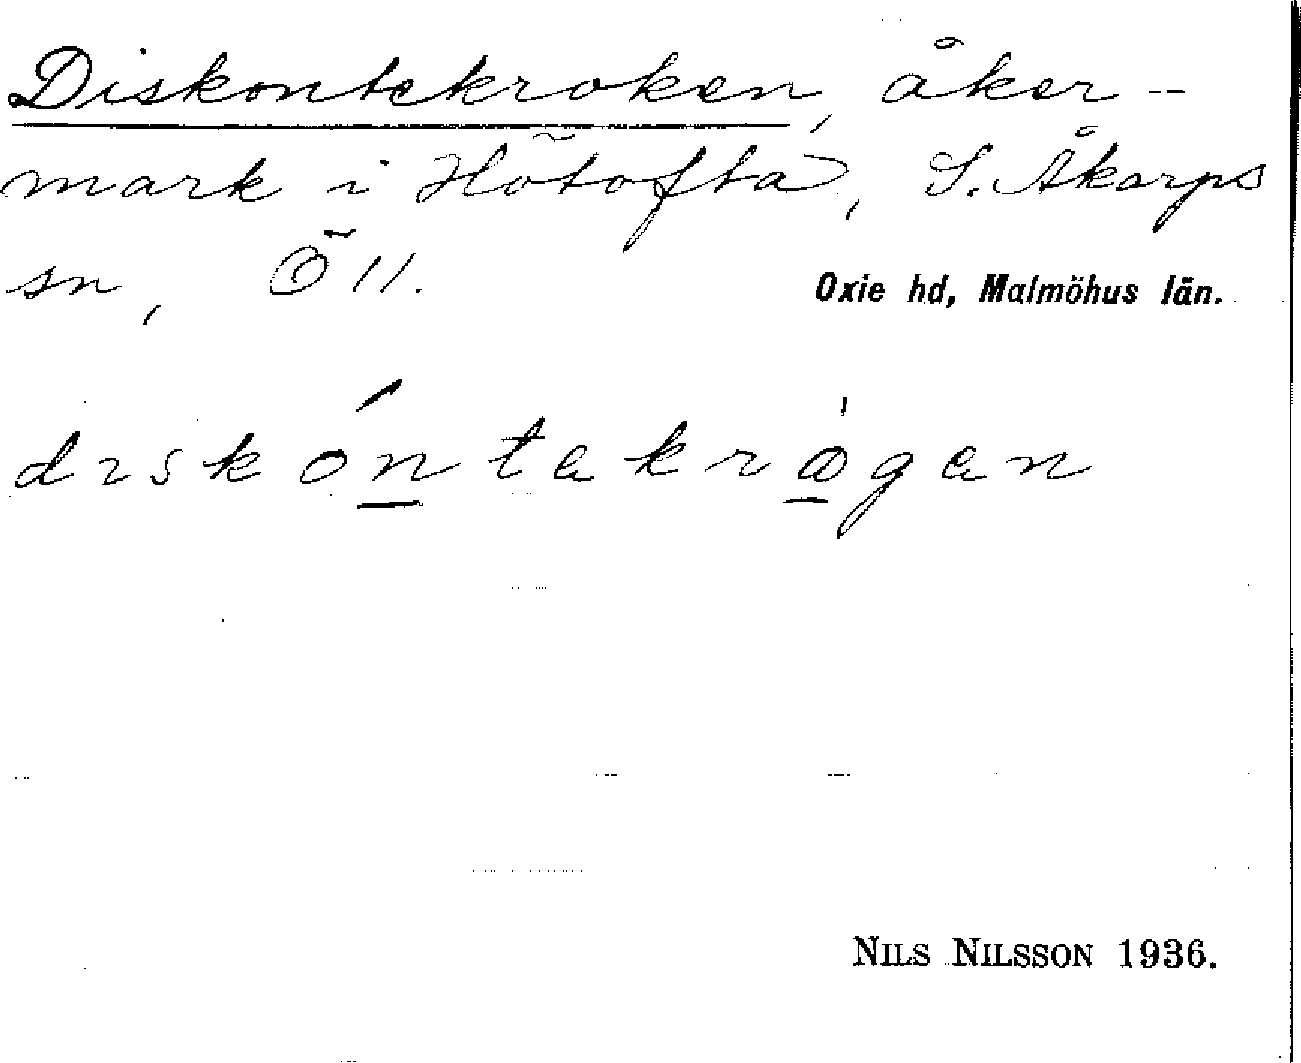 Diskontekroken, åker-
mark i Hötofta, S. Åkarps
sn, Ö 11.
Oxie hd, Malmöhus län.
diskóntekrògen
NILS NILSSON 1936.